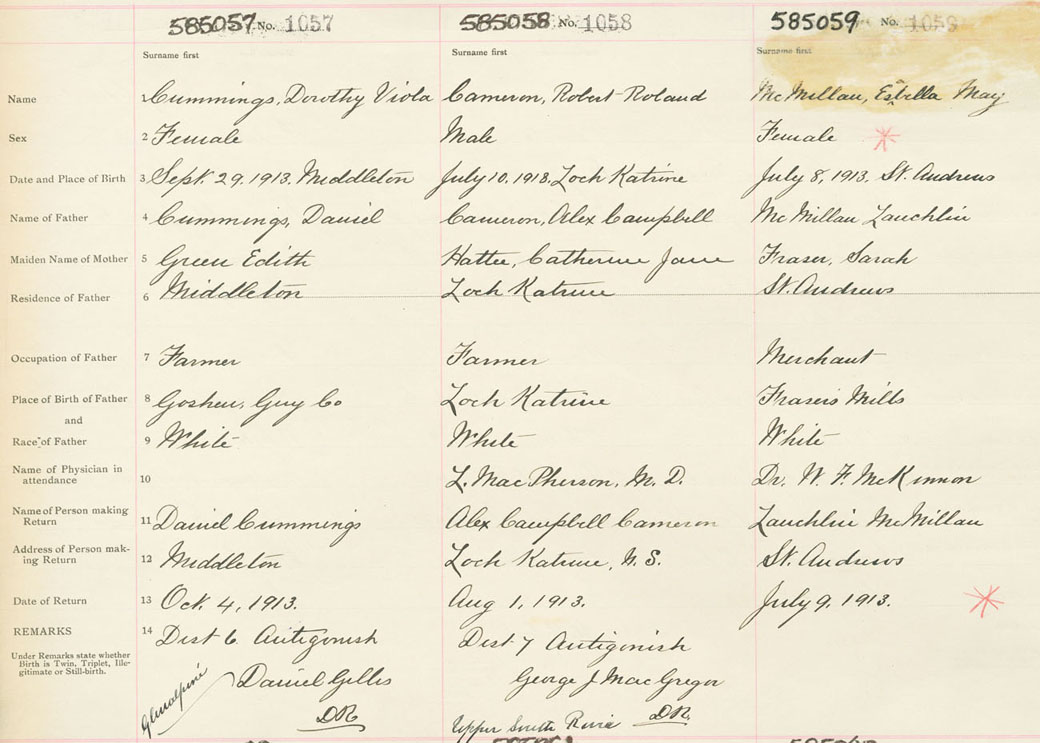 585057 No. 1057 585058 No. 1058 585059 No. 1059
Surname first Surname first Surname first
Name 1 Cummings, Dorothy Viola Cameron, Robert Roland McMillan, Estella May
Sex 2 Female Male Female
Date and Place of Birth 3 Sept. 29. 1913. Middleton July 10. 1913. Loch Katrine July 8, 1913. St. Andrews
Name of Father 4 Cummings, Daniel Cameron, Alex Campbell McMillan Lauchlin
Maiden Name of Mother 5 Green Edith Hattie, Catherine Jane Fraser, Sarah
Residence of Father 6 Middleton Loch Katrine St. Andrews
Occupation of Father 7 Farmer Farmer Merchant
Place of Birth of Father 8 Goshen, Guy Co Loch Katrine Frasers Mills
and
Race of Father 9 White White White
Name of Physician in
attendance 10 L. MacPherson, M. D. Dr. W. F. McKinnon
Name of Person making
Return 11 Daniel Cummings Alex Campbell Cameron Lauchlin McMillan
Address of Person mak-
ing Return 12 Middleton Loch Katrine, N. S. St. Andrews
Date of Return 13 Oct. 4, 1913. Aug 1, 1913. July 9, 1913.
REMARKS 14 Dist 6 Antigonish Dist 7 Antigonish
Under Remarks state whether
Birth is Twin, Triplet, Ille-
gitimate or Still-birth.
Glenalpine Daniel Gillis George J MacGregor
DR Upper South River DR.